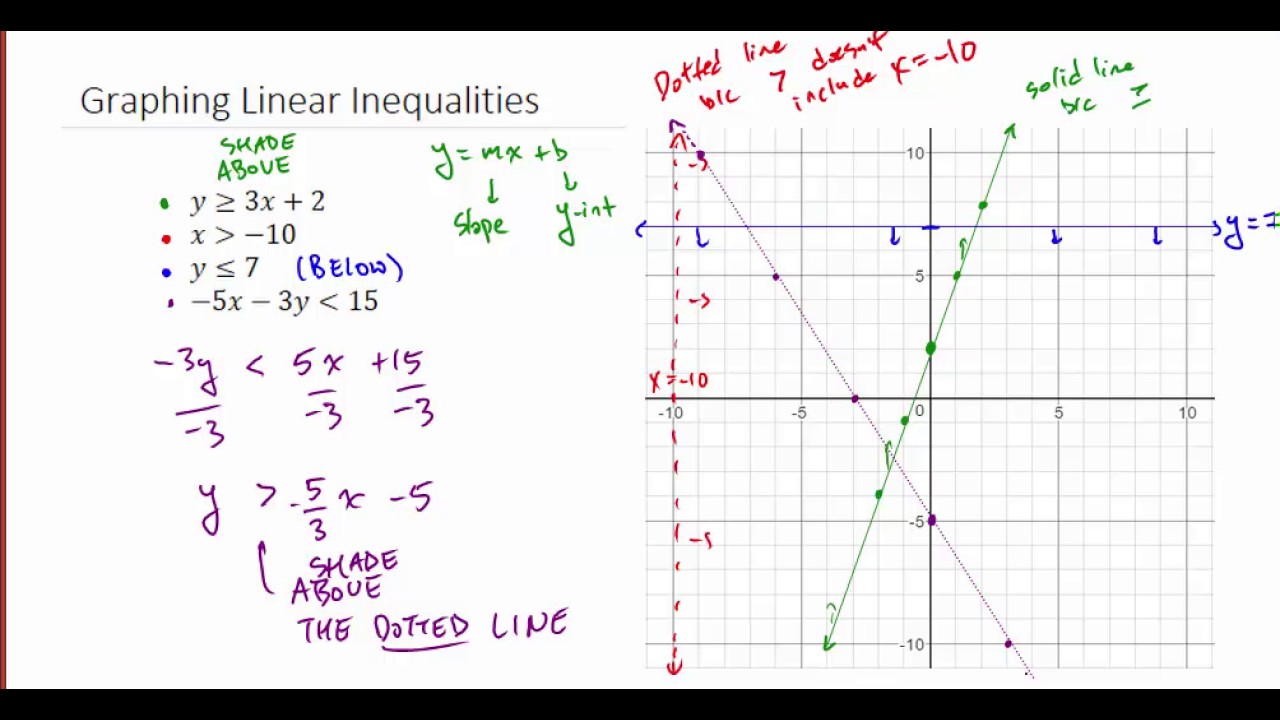 Graphing Linear Inequalities
SHADE
ABOVE
• y ≥ 3x + 2
• x > −10
• y ≤ 7 (BELOW)
• −5x − 3y < 15
y = mx + b
slope y-int
-3y < 5x +15
-3 -3 -3
y > -5/3 x -5
SHADE
ABOVE
THE DOTTED LINE
Dotted line
b/c > doesn't
include x = -10
solid line
b/c ≥
10
y = 7
5
x = -10
-10 -5 0 5 10
-5
-10